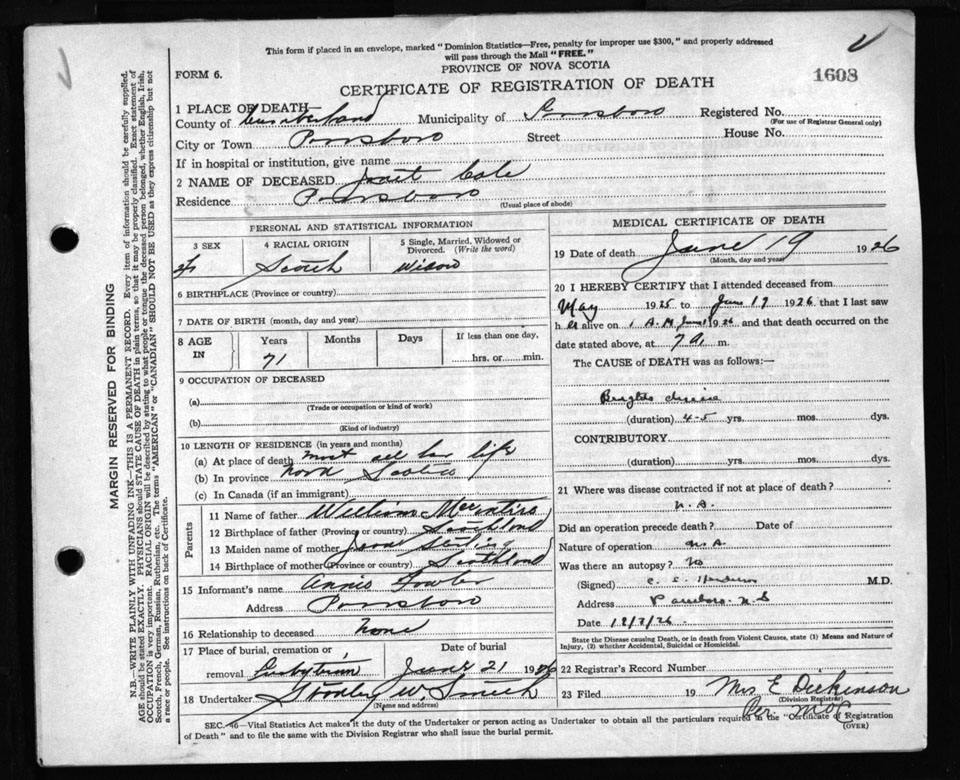 This form if placed in an envelope, marked "Dominion Statistics—Free, penalty for improper use $300," and properly addressed
will pass through the Mail "FREE."
PROVINCE OF NOVA SCOTIA
FORM 6.
CERTIFICATE OF REGISTRATION OF DEATH
1608
1 PLACE OF DEATH—
County of Cumberland Municipality of Parrsboro Registered No.
(For use of Registrar General only)
City or Town Parrsboro Street House No.
If in hospital or institution, give name
2 NAME OF DECEASED Cole
Residence Parrsboro
(Usual place of abode)
PERSONAL AND STATISTICAL INFORMATION
3 SEX
4 RACIAL ORIGIN Scotch
5 Single, Married, Widowed or Divorced. (Write the word) Widow
6 BIRTHPLACE (Province or country)
7 DATE OF BIRTH (month, day and year)
8 AGE IN Years Months Days If less than one day,
71 hrs. or min.
9 OCCUPATION OF DECEASED
(a)
(Trade or occupation or kind of work)
(b)
(Kind of industry)
10 LENGTH OF RESIDENCE (in years and months)
(a) At place of death most all her life
(b) In province Nova Scotia
(c) In Canada (if an immigrant)
Parents
11 Name of father William
12 Birthplace of father (Province or country) Scotland
13 Maiden name of mother
14 Birthplace of mother (Province or country) Scotland
15 Informant's name Annie Fowler
Address Parrsboro
16 Relationship to deceased None
17 Place of burial, cremation or removal Date of burial
June 21 1926
18 Undertaker W. Smith
(Name and address)
MEDICAL CERTIFICATE OF DEATH
19 Date of death June 19 1926
(Month, day and year)
20 I HEREBY CERTIFY that I attended deceased from
May 1925 to June 19 1926 that I last saw
h er alive on 1 A.M. June 1926 and that death occurred on the
date stated above, at 7 a. m.
The CAUSE of DEATH was as follows:—
Brights disease
(duration) 4-5 yrs. mos. dys.
CONTRIBUTORY
(duration) yrs. mos. dys.
21 Where was disease contracted if not at place of death?
N. A.
Did an operation precede death? Date of
Nature of operation N A
Was there an autopsy? No
(Signed) M.D.
Address Parrsboro N.S
Date
State the Disease causing Death, or in death from Violent Causes, state (1) Means and Nature of
Injury, (2) whether Accidental, Suicidal or Homicidal.
22 Registrar's Record Number
23 Filed 19 Mrs E Dickinson
(Division Registrar)
Per
SEC. 46—Vital Statistics Act makes it the duty of the Undertaker or person acting as Undertaker to obtain all the particulars required in the "Certificate of Registration
of Death" and to file the same with the Division Registrar who shall issue the burial permit.
(OVER)
MARGIN RESERVED FOR BINDING
N.B.—WRITE PLAINLY WITH UNFADING INK—THIS IS A PERMANENT RECORD. Every item of information should be carefully supplied.
AGE should be stated EXACTLY. PHYSICIANS should STATE CAUSE OF DEATH in plain terms, so that it may be properly classified. Exact statement of
OCCUPATION is very important. RACIAL ORIGIN will be described by stating to what people or tongue the deceased person belonged, whether English, Irish,
Scotch, French, German, Russian, Ruthenian, etc. The terms "AMERICAN" or "CANADIAN" SHOULD NOT BE USED as they express citizenship but not
a race or people. See instructions on back of Certificate.